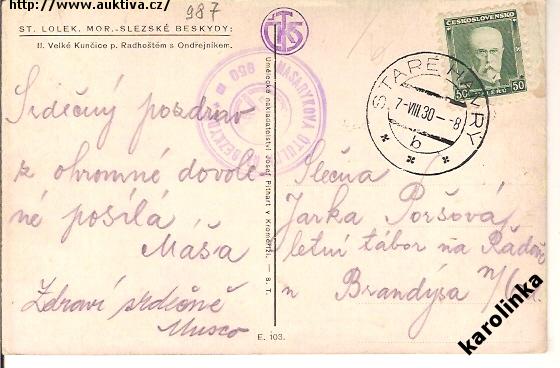 http://www.auktiva.cz/
987
ST. LOLEK. MOR.-SLEZSKÉ BESKYDY:
II. Velké Kunčice p. Radhoštěm s Ondřejníkem.
ČESKOSLOVENSKO
50 50
HALÉŘŮ
STARÉ HAMRY
7-VIII.30-8
b
MASARYKOVA
Umělecké nakladatelství Josef Pithart v Kroměříži. — S. T.
Srdečný pozdrav
z ohromné dovole-
né posílá
Máša
Zdraví srdečně
Slečna
Jarka Poršová
letní tábor na
u Brandýsa n/
E. 103.
karolinka